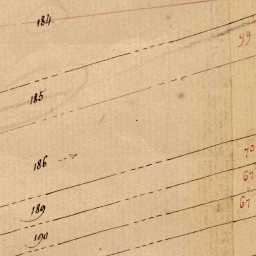 184
99
185
186
70
67
189
67
190